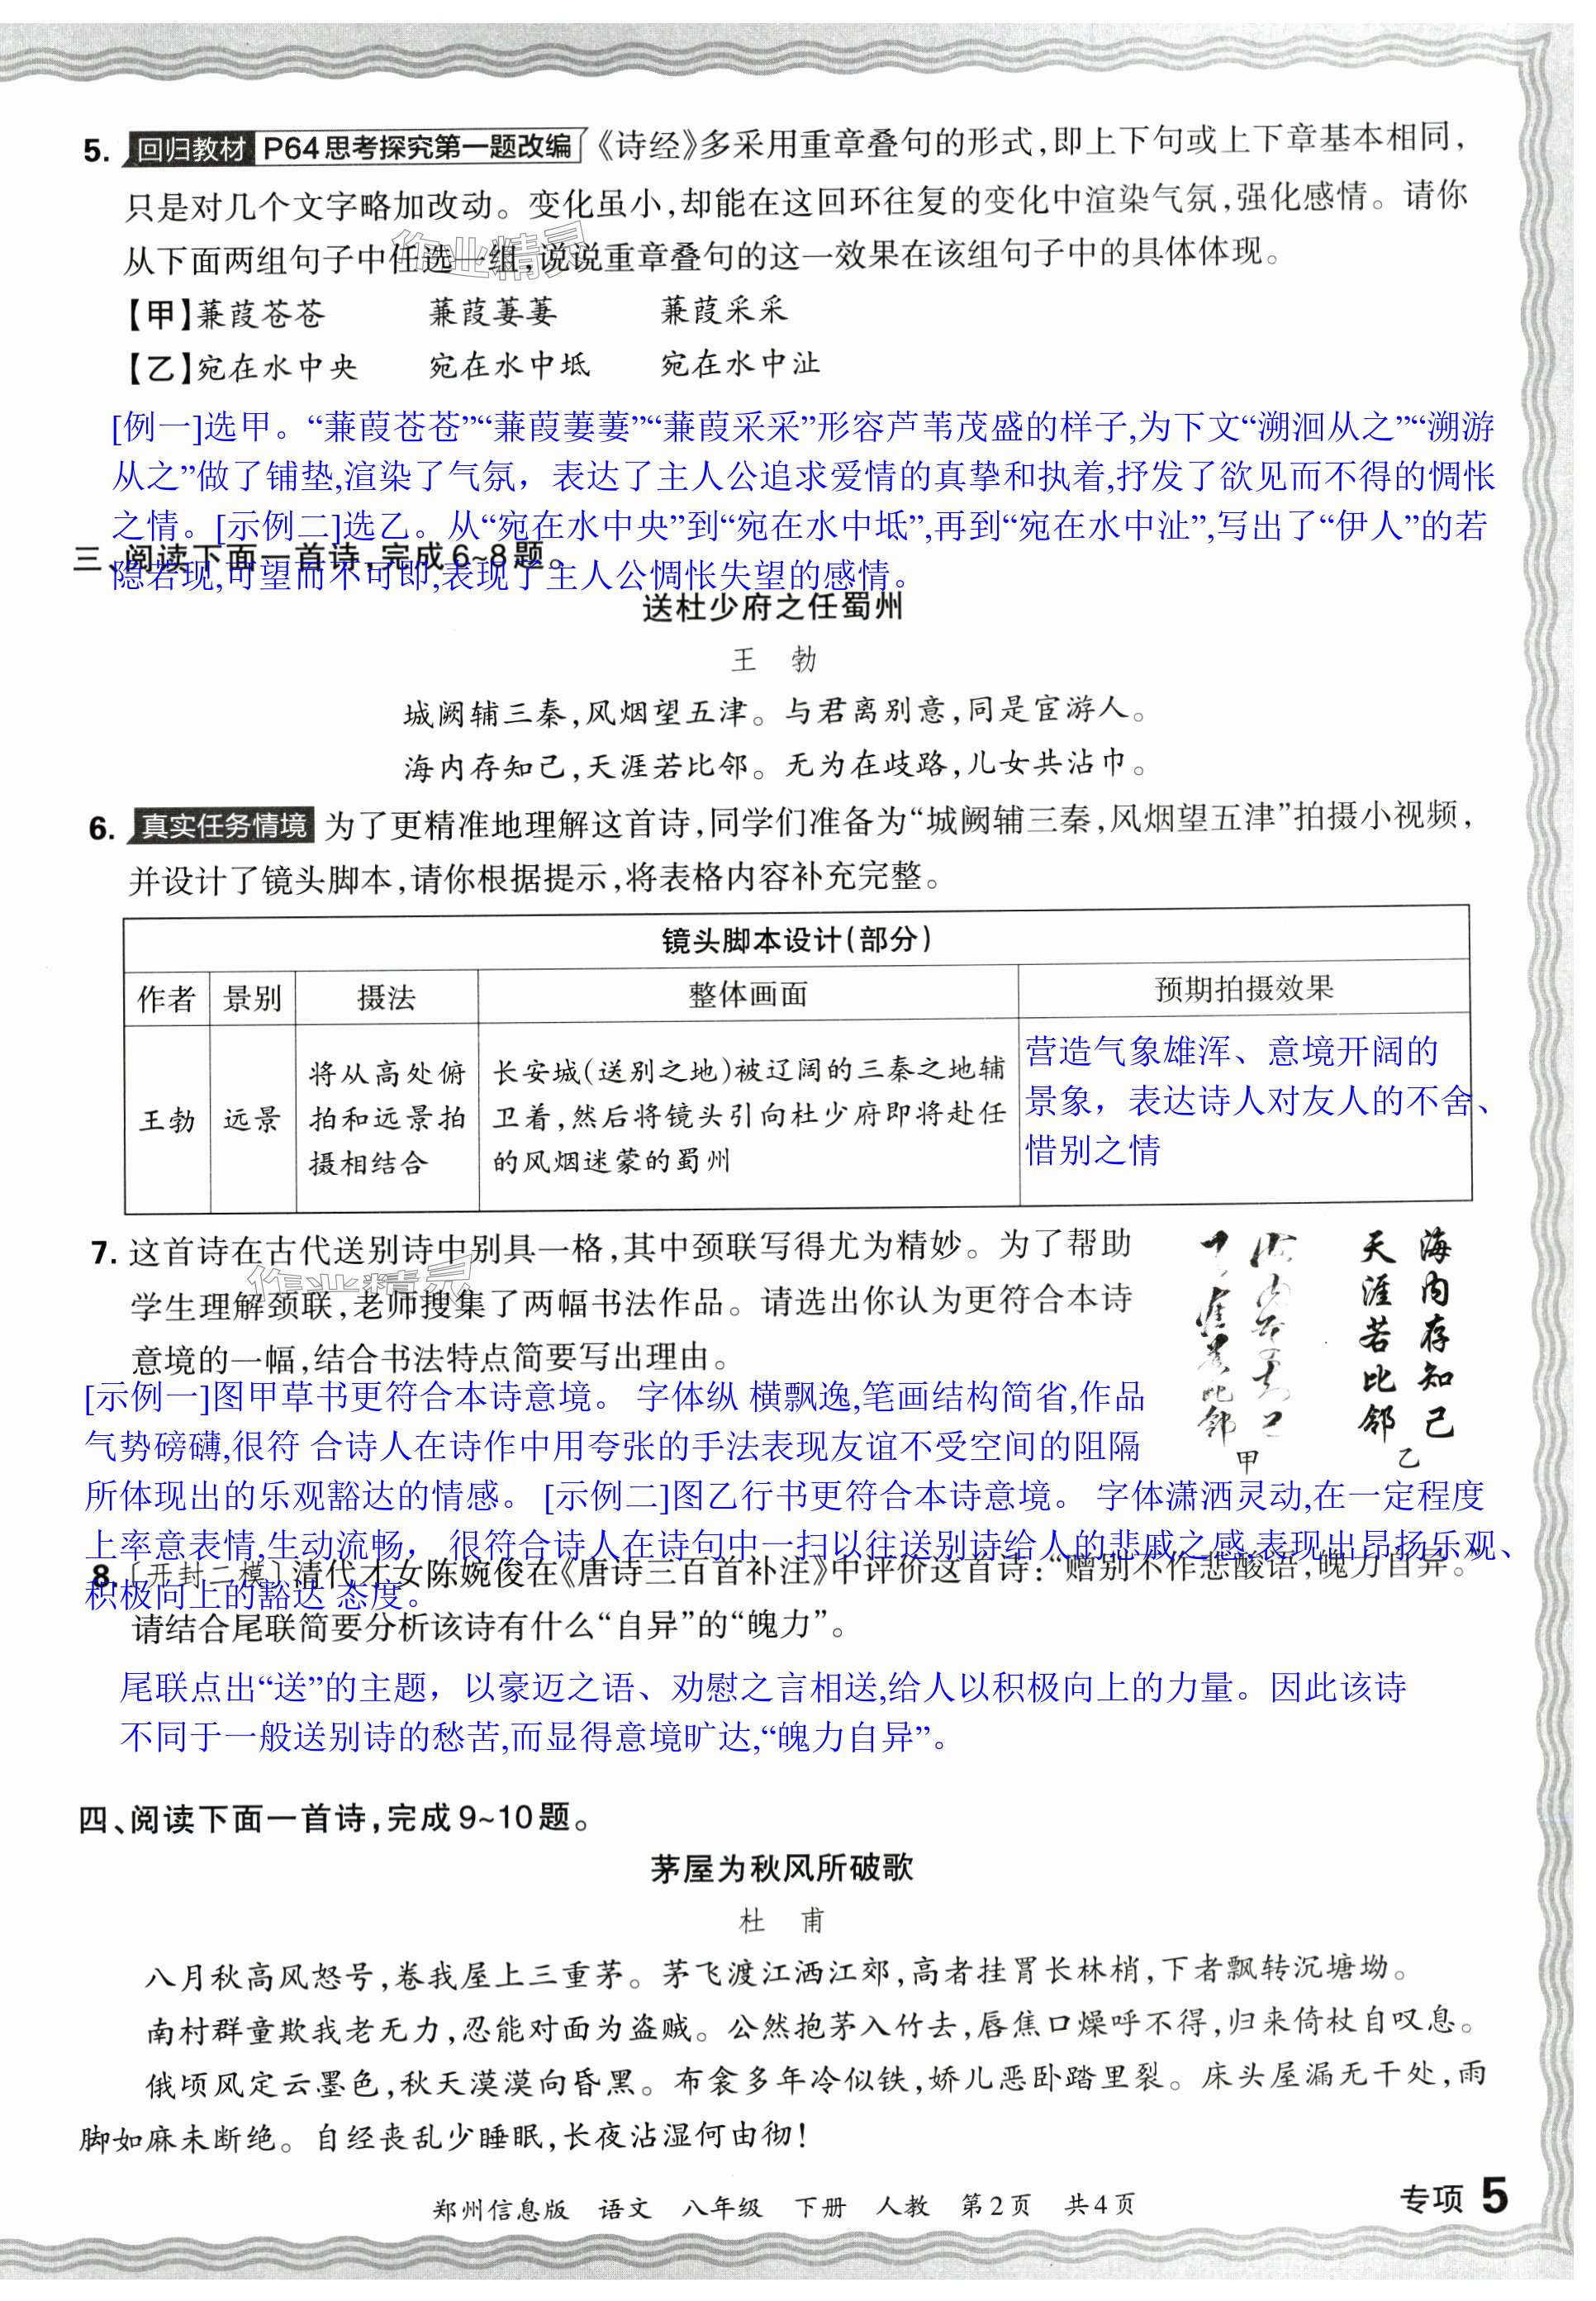 5. 回归教材 P64思考探究第一题改编 《诗经》多采用重章叠句的形式,即上下句或上下章基本相同,
只是对几个文字略加改动。变化虽小,却能在这回环往复的变化中渲染气氛,强化感情。请你
从下面两组句子中任选一组,说说重章叠句的这一效果在该组句子中的具体体现。
作业精灵
【甲】蒹葭苍苍 蒹葭萋萋 蒹葭采采
【乙】宛在水中央 宛在水中坻 宛在水中沚
[例一]选甲。“蒹葭苍苍”“蒹葭萋萋”“蒹葭采采”形容芦苇茂盛的样子,为下文“溯洄从之”“溯游
从之”做了铺垫,渲染了气氛，表达了主人公追求爱情的真挚和执着,抒发了欲见而不得的惆怅
之情。[示例二]选乙。从“宛在水中央”到“宛在水中坻”,再到“宛在水中沚”,写出了“伊人”的若
隐若现,可望而不可即,表现了主人公惆怅失望的感情。
三、阅读下面一首诗,完成6~8题。
送杜少府之任蜀州
王 勃
城阙辅三秦,风烟望五津。与君离别意,同是宦游人。
海内存知己,天涯若比邻。无为在歧路,儿女共沾巾。
6. 真实任务情境 为了更精准地理解这首诗,同学们准备为“城阙辅三秦,风烟望五津”拍摄小视频,
并设计了镜头脚本,请你根据提示,将表格内容补充完整。
镜头脚本设计(部分)
作者 景别 摄法 整体画面 预期拍摄效果
王勃 远景
将从高处俯
拍和远景拍
摄相结合
长安城(送别之地)被辽阔的三秦之地辅
卫着,然后将镜头引向杜少府即将赴任
的风烟迷蒙的蜀州
营造气象雄浑、意境开阔的
景象，表达诗人对友人的不舍、
惜别之情
7. 这首诗在古代送别诗中别具一格,其中颈联写得尤为精妙。为了帮助
学生理解颈联,老师搜集了两幅书法作品。请选出你认为更符合本诗
意境的一幅,结合书法特点简要写出理由。
作业精灵
海内存知己
天涯若比邻
甲
海内存知己
天涯若比邻
乙
[示例一]图甲草书更符合本诗意境。 字体纵 横飘逸,笔画结构简省,作品
气势磅礴,很符 合诗人在诗作中用夸张的手法表现友谊不受空间的阻隔
所体现出的乐观豁达的情感。 [示例二]图乙行书更符合本诗意境。 字体潇洒灵动,在一定程度
上率意表情,生动流畅， 很符合诗人在诗句中一扫以往送别诗给人的悲戚之感,表现出昂扬乐观、
积极向上的豁达 态度。
8. 〔开封二模〕清代才女陈婉俊在《唐诗三百首补注》中评价这首诗:“赠别不作悲酸语,魄力自异。”
请结合尾联简要分析该诗有什么“自异”的“魄力”。
尾联点出“送”的主题，以豪迈之语、劝慰之言相送,给人以积极向上的力量。因此该诗
不同于一般送别诗的愁苦,而显得意境旷达,“魄力自异”。
四、阅读下面一首诗,完成9~10题。
茅屋为秋风所破歌
杜 甫
八月秋高风怒号,卷我屋上三重茅。茅飞渡江洒江郊,高者挂罥长林梢,下者飘转沉塘坳。
南村群童欺我老无力,忍能对面为盗贼。公然抱茅入竹去,唇焦口燥呼不得,归来倚杖自叹息。
俄顷风定云墨色,秋天漠漠向昏黑。布衾多年冷似铁,娇儿恶卧踏里裂。床头屋漏无干处,雨
脚如麻未断绝。自经丧乱少睡眠,长夜沾湿何由彻!
郑州信息版 语文 八年级 下册 人教 第2页 共4页
专项 5